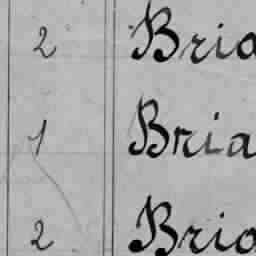 2 Bria
1 Bria
2 Bria